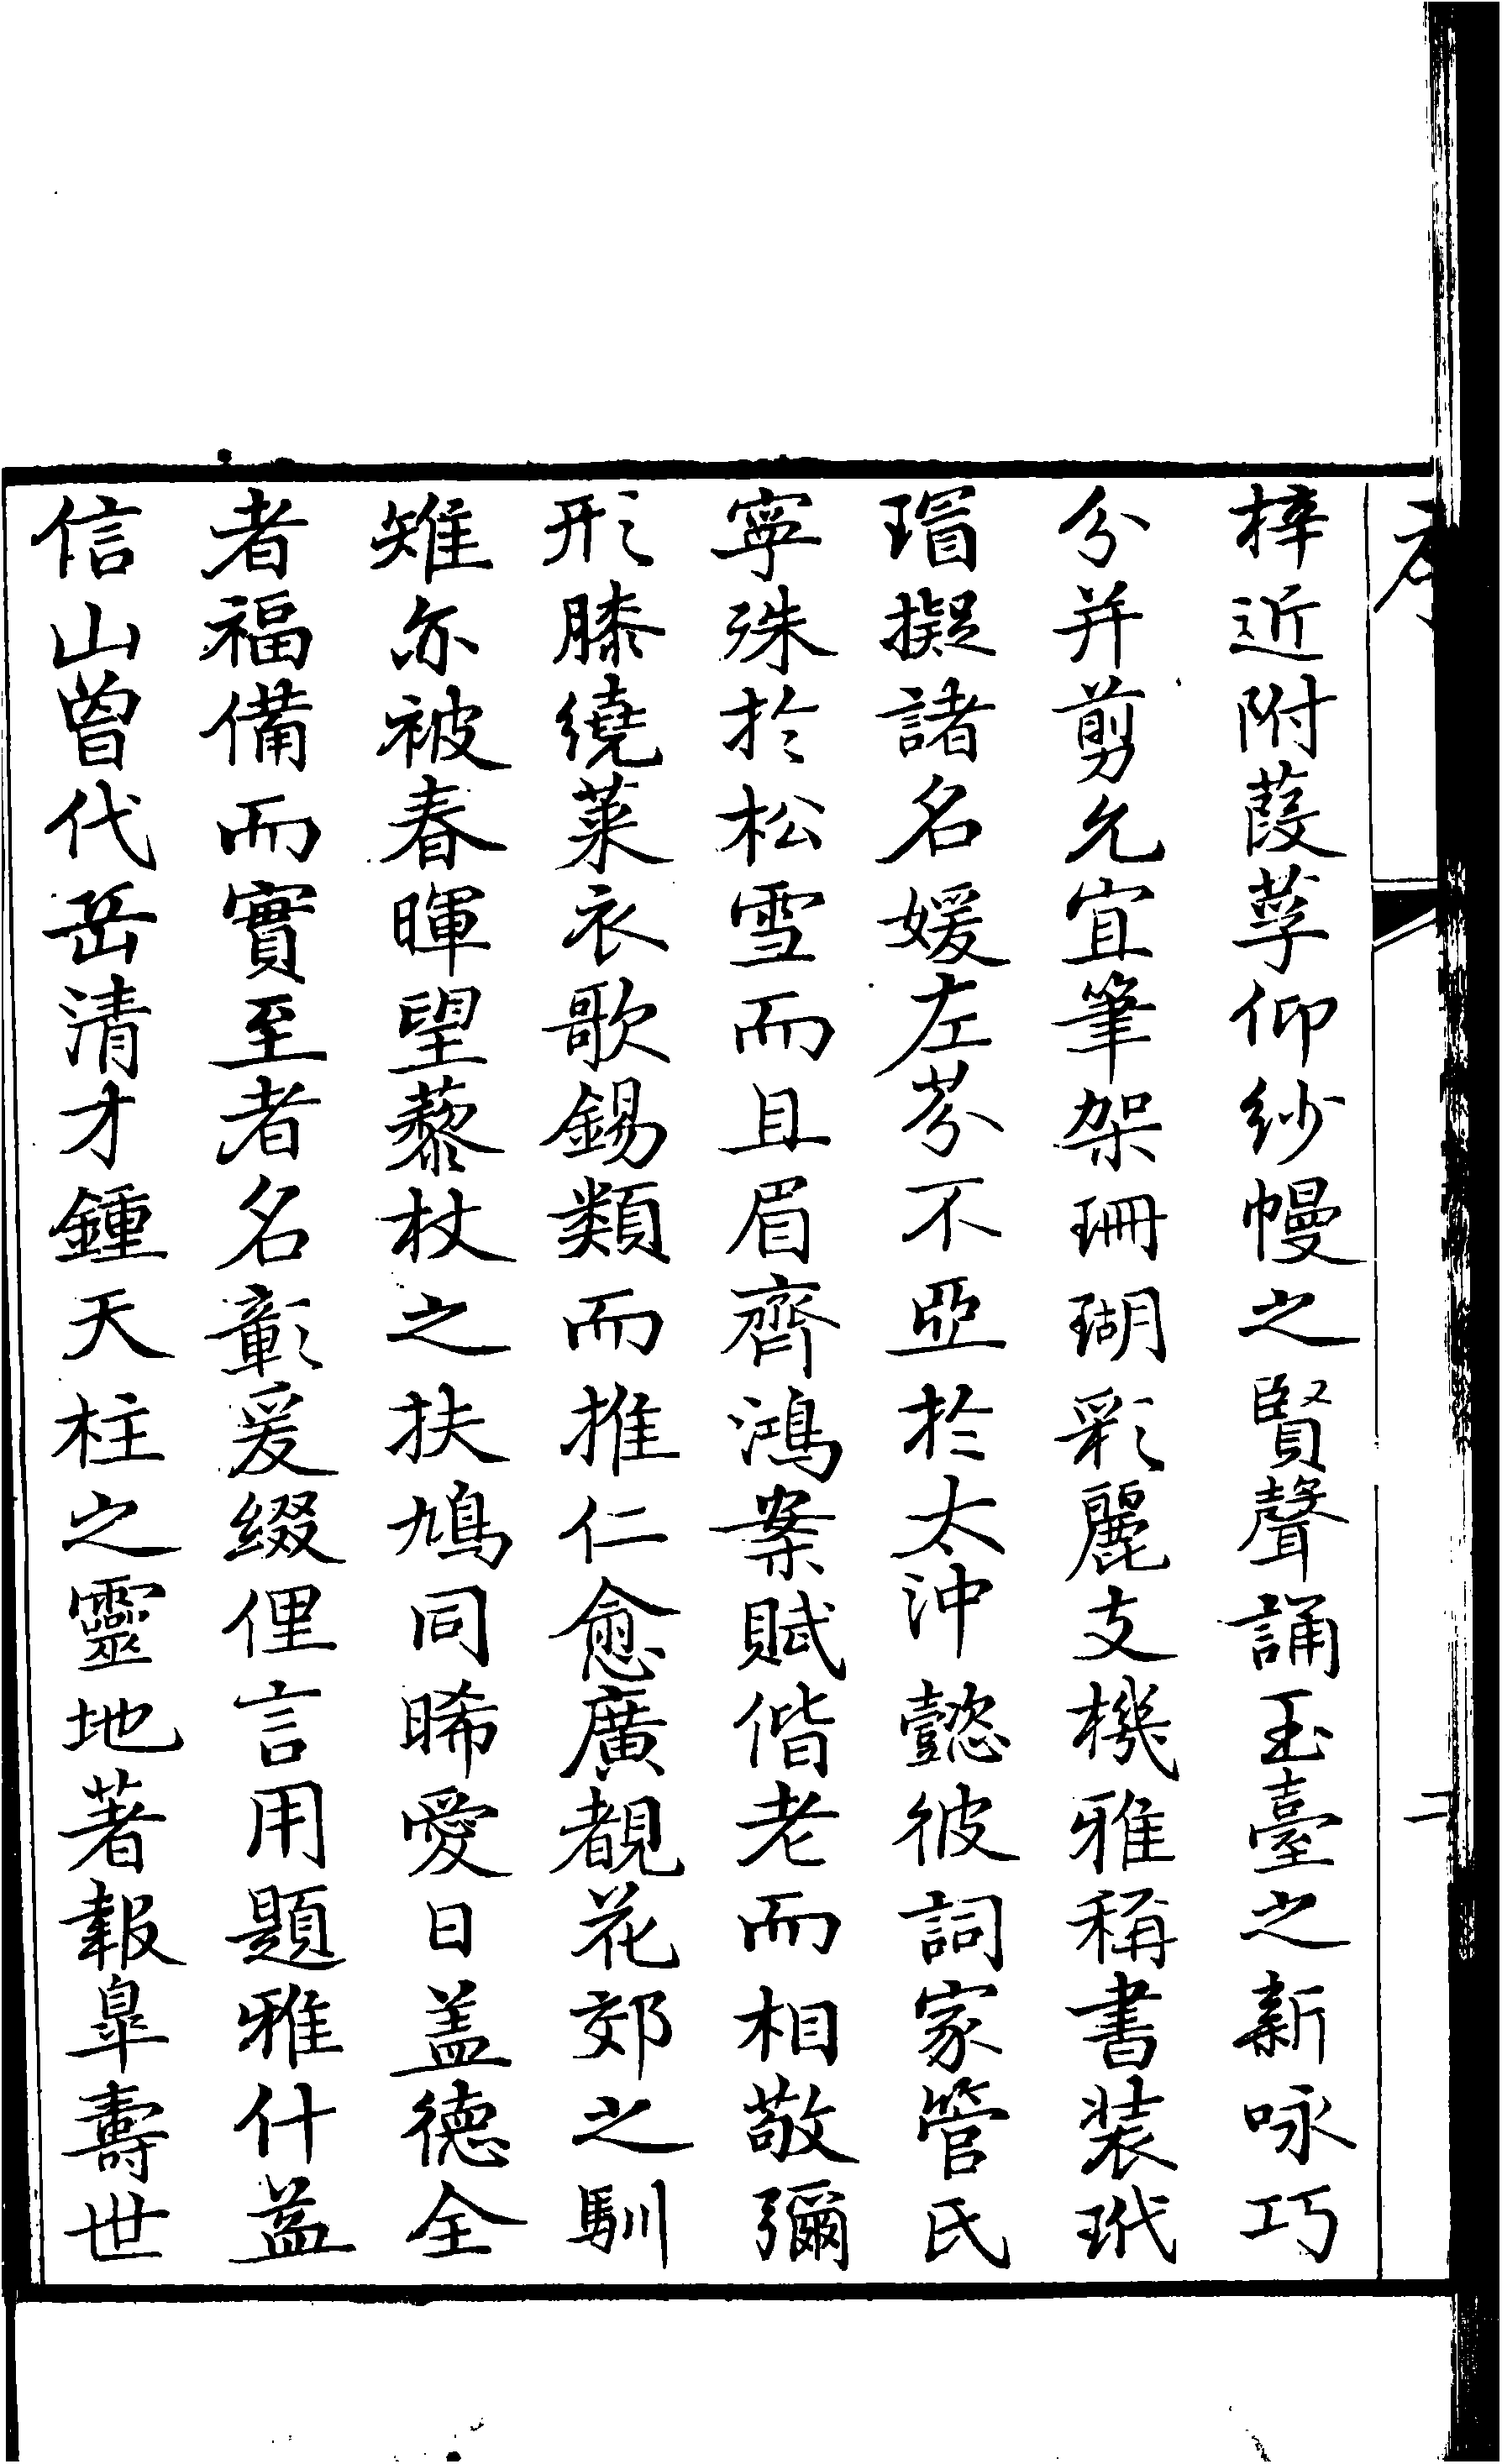 梓近附葭莩仰紗幔之賢聲誦玉臺之新咏巧
分并剪允宜筆架珊瑚彩麗支機雅稱書裝玳
瑁擬諸名媛左芬不亞於太沖懿彼詞家管氏
寧殊於松雪而且眉齊鴻案賦偕老而相敬彌
形膝繞萊衣歌錫類而推仁愈廣覩花郊之馴
雉亦被春暉望藜杖之扶鳩同晞愛日盖德全
者福備而實至者名彰爰綴俚言用題雅什盖
信山曾代岳清才鍾天柱之靈地著報皐壽世
二